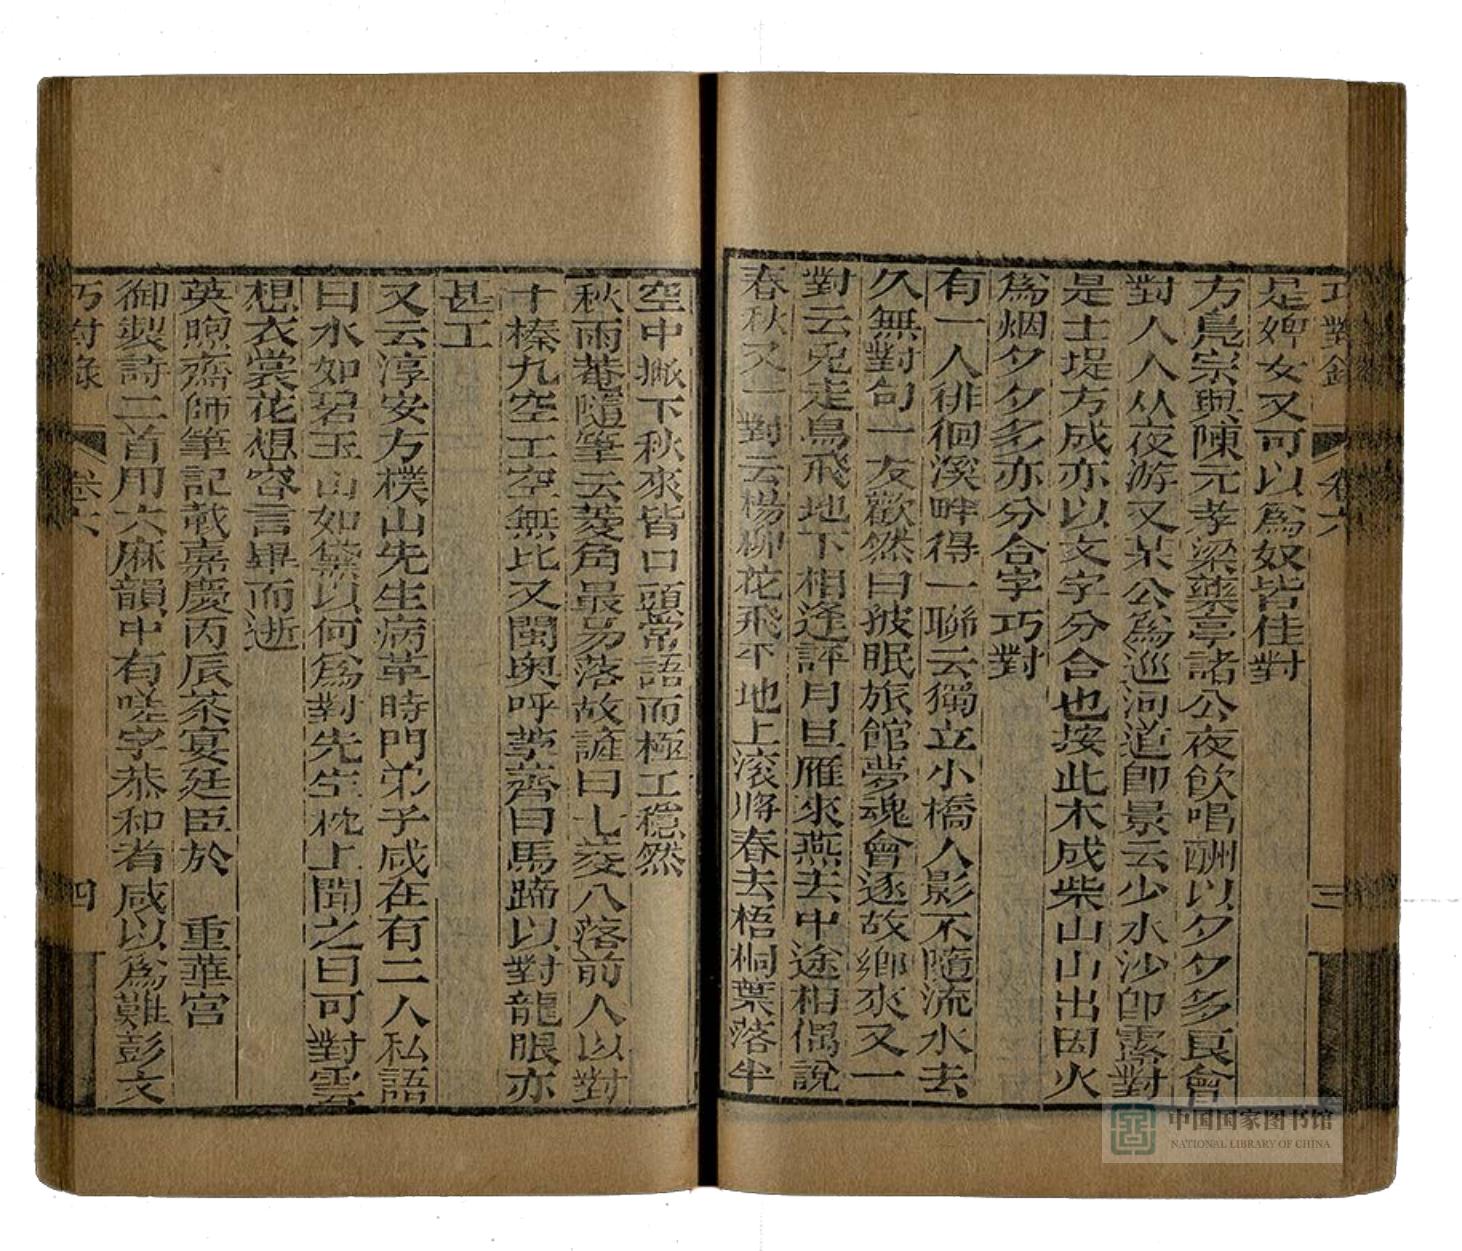 巧對錄 卷六 三
是婢女又可以爲奴皆佳對
方鳧宗與陳元孝梁藥亭諸公夜飲唱酬以夕夕多良會
對人人从夜游又某公爲巡河道卽景云少水沙卽露對
是土堤方成亦以文字分合也按此木成柴山山出因火
爲烟夕夕多亦分合字巧對
有一人徘徊溪畔得一聯云獨立小橋人影不隨流水去
久無對句一友歡然曰披眠旅館夢魂會逐故鄉來又一
對云兎走鳥飛地下相逢評月旦雁來燕去中途相偶說
春秋又一對云楊柳花飛平地上滚將春去梧桐葉落半
空中撅下秋來皆口頭常語而極工穩然
秋雨菴隨筆云菱角最易落故諺曰七菱八落前人以對
十榛九空工空無比又閩奥呼荸薺曰馬蹄以對龍眼亦
甚工
又云淳安方樸山先生病革時門弟子咸在有二人私語
曰水如碧玉山如黛以何爲對先生枕上聞之曰可對雲
想衣裳花想容言畢而逝
英煦齋師筆記載嘉慶丙辰茶宴廷臣於 重華宮
御製詩二首用六麻韻中有嗟字恭和者咸以爲難彭文
巧對錄 卷六 四
中国国家图书馆
NATIONAL LIBRARY OF CHINA